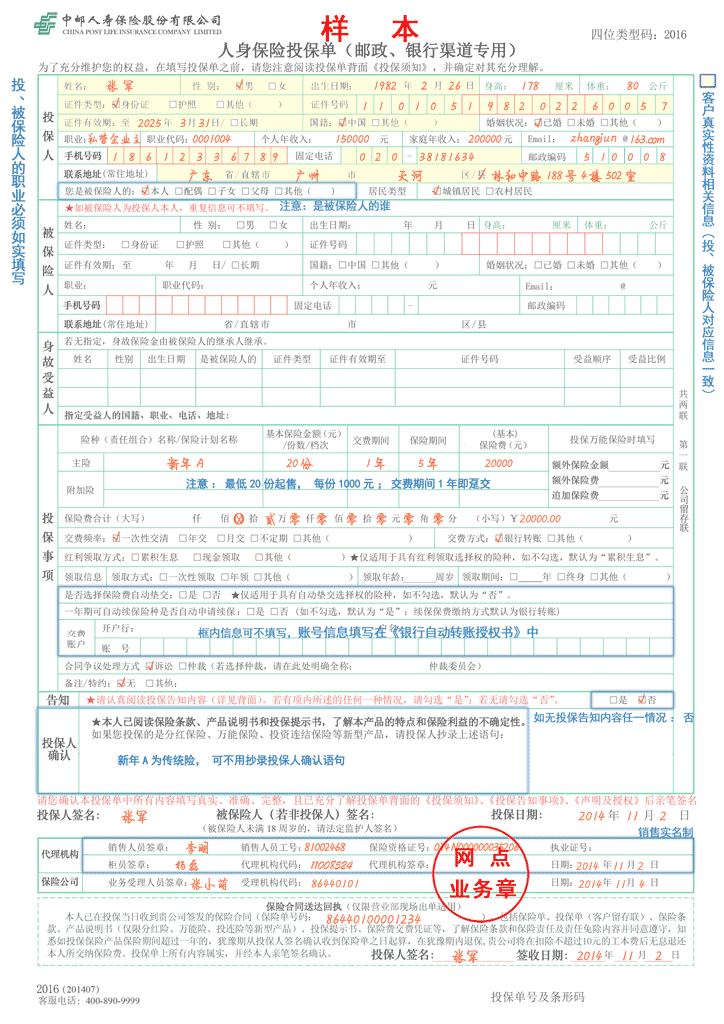 中邮人寿保险股份有限公司
CHINA POST LIFE INSURANCE COMPANY LIMITED
样 本
四位类型码：2016
人身保险投保单（邮政、银行渠道专用）
为了充分维护您的权益，在填写投保单之前，请您注意阅读投保单背面《投保须知》，并确定对其充分理解。
投、被保险人的职业必须如实填写
客户真实性资料相关信息（投、被保险人对应信息一致）
投保人
姓名： 张军 性 别： ☑男 □女 出生日期： 1982 年 2 月 26 日 身高： 178 厘米 体重： 80 公斤
证件类型：☑身份证 □护照 □其他（ ） 证件号码 110105198202260057
证件有效期：至 2025 年 3月31日/□长期 国籍：☑中国 □其他（ ） 婚姻状况：☑已婚 □未婚 □其他（ ）
职业：私营企业主 职业代码：0001004 个人年收入： 150000 元 家庭年收入：200000元 Email： zhangjun @163.com
手机号码 18612336789 固定电话 020-38181634 邮政编码 510008
联系地址(常住地址) 广东 省/直辖市 广州 市 天河 区/县 林和中路188号4楼502室
您是被保险人的：☑本人 □配偶 □子女 □父母 □其他（ ） 居民类型 ☑城镇居民 □农村居民
被保险人
★如被保险人为投保人本人，重复信息可不填写。 注意：是被保险人的谁
姓名： 性 别： □男 □女 出生日期： 年 月 日 身高： 厘米 体重： 公斤
证件类型： □身份证 □护照 □其他（ ） 证件号码
证件有效期：至 年 月 日/ □长期 国籍：□中国 □其他（ ） 婚姻状况：□已婚 □未婚 □其他（ ）
职业： 职业代码： 个人年收入： 元 Email： @
手机号码 固定电话 - 邮政编码
联系地址(常住地址) 省/直辖市 市 区/县
身故受益人
若无指定，身故保险金由被保险人的继承人继承。
姓名 性别 出生日期 是被保险人的 证件类型 证件有效期至 证件号码 受益顺序 受益比例
指定受益人的国籍、职业、电话、地址：
共两联 第一联 公司留存联
投保事项
险种（责任组合）名称/保险计划名称 基本保险金额（元）/份数/档次 交费期间 保险期间 （基本）保险费（元） 投保万能保险时填写
主险 新年A 20份 1年 5年 20000 额外保险金额 元
附加险 注意： 最低20份起售， 每份1000元； 交费期间1年即趸交 额外保险费 元
追加保险费 元
保险费合计（大写） 仟 佰 ⊗ 拾 贰 万 零 仟 零 佰 零 拾 零 元 零 角 零 分 （小写）￥20000.00 元
交费频率：☑一次性交清 □年交 □月交 □不定期 □其他（ ） 交费方式：☑银行转账 □其他（ ）
红利领取方式：□累积生息 □现金领取 □其他（ ）★仅适用于具有红利领取选择权的险种，如不勾选，默认为“累积生息”。
领取信息 领取方式：□一次性领取 □年领 □其他（ ） 领取年龄：____周岁 领取期间：□____年 □终身 □其他（ ）
是否选择保险费自动垫交：□是 □否 ★仅适用于具有自动垫交选择权的险种，如不勾选，默认为“否”。
一年期可自动续保险种是否自动申请续保：□是 □否 (如不勾选，默认为“是”；续保保费缴纳方式默认为银行转账)
交费账户 开户行： 框内信息可不填写，账号信息填写在《银行自动转账授权书》中
账 号
合同争议处理方式 ☑诉讼 □仲裁（若选择仲裁，请在此处明确全称： 仲裁委员会）
备注/特约：☑无 □其他：
告知 ★请认真阅读投保告知内容（详见背面）。若有项内所述的任何一种情况，请勾选“是”；若无请勾选“否”。 □是 ☑否
投保人确认
★本人已阅读保险条款、产品说明书和投保提示书，了解本产品的特点和保险利益的不确定性。
如无投保告知内容任一情况： 否
如果您投保的是分红保险、万能保险、投资连结保险等新型产品，请投保人抄录上述语句：
新年A为传统险， 可不用抄录投保人确认语句
请您确认本投保单中所有内容填写真实、准确、完整，且已充分了解投保单背面的《投保须知》、《投保告知事项》、《声明及授权》后亲笔签名
投保人签名： 张军 被保险人（若非投保人）签名： 投保日期： 2014 年 11 月 2 日
（被保险人未满18周岁的，请法定监护人签名）
销售实名制
代理机构 销售人员签章： 李明 销售人员工号：81002468 保险资格证号： 执业证号：
柜员签章： 杨磊 代理机构代码：11008524 代理机构签章： 日期：2014 年 11月 2 日
保险公司 业务受理人员签章：张小萌 受理机构代码： 86440101 日期：2014 年 11月 4 日
网 点
业务章
保险合同送达回执（仅限营业部现场出单适用）
本人已在投保当日收到贵公司签发的保险合同（保险单号码： 86440100001234 ），包括保险单、投保单（客户留存联）、保险条
款、产品说明书（仅限分红险、万能险、投连险等新型产品）、投保提示书、保险费交费凭证等，了解保险条款和保险责任及责任免除内容并同意遵守，知
悉如投保保险产品保险期间超过一年的，犹豫期从投保人签名确认收到保险单之日起算，在犹豫期内退保，贵公司将在扣除不超过10元的工本费后无息退还
本人所交纳保险费。投保单上所有内容属实，并经本人亲笔签名确认。 投保人签名： 张军 签收日期： 2014 年 11 月 2 日
2016 (201407)
客服电话：400-890-9999
投保单号及条形码